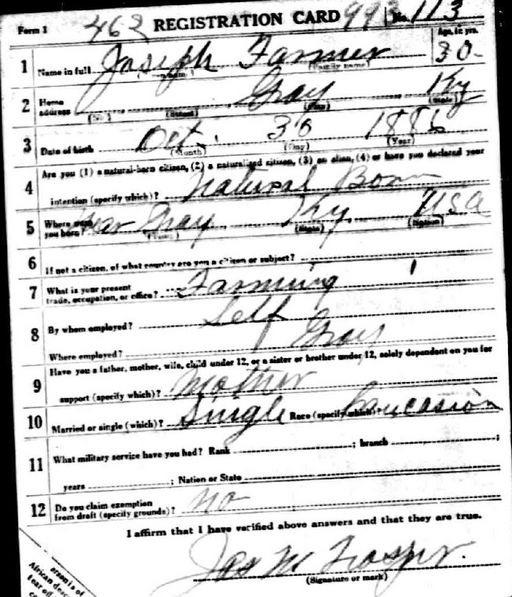 Form 1 462 REGISTRATION CARD 993 No. 113
1 Name in full Joseph Farmer Age, in yrs. 30
(Family name)
2 Home address Gray Ky
(No.) (Street) (City) (State)
3 Date of birth Oct. 30 1886
(Month) (Day) (Year)
4 Are you (1) a natural-born citizen, (2) a naturalized citizen, (3) an alien, (4) or have you declared your
intention (specify which)? Natural Born
5 Where were you born? Near Gray Ky USA
(Town) (State) (Nation)
6 If not a citizen, of what country are you a citizen or subject?
7 What is your present trade, occupation, or office? Farming
8 By whom employed? Self
Where employed? Gray
9 Have you a father, mother, wife, child under 12, or a sister or brother under 12, solely dependent on you for
support (specify which)? Mother
10 Married or single (which)? Single Race (specify which)? Caucasion
11 What military service have you had? Rank ; branch ;
years ; Nation or State
12 Do you claim exemption from draft (specify grounds)? No
I affirm that I have verified above answers and that they are true.
(Signature or mark)
African